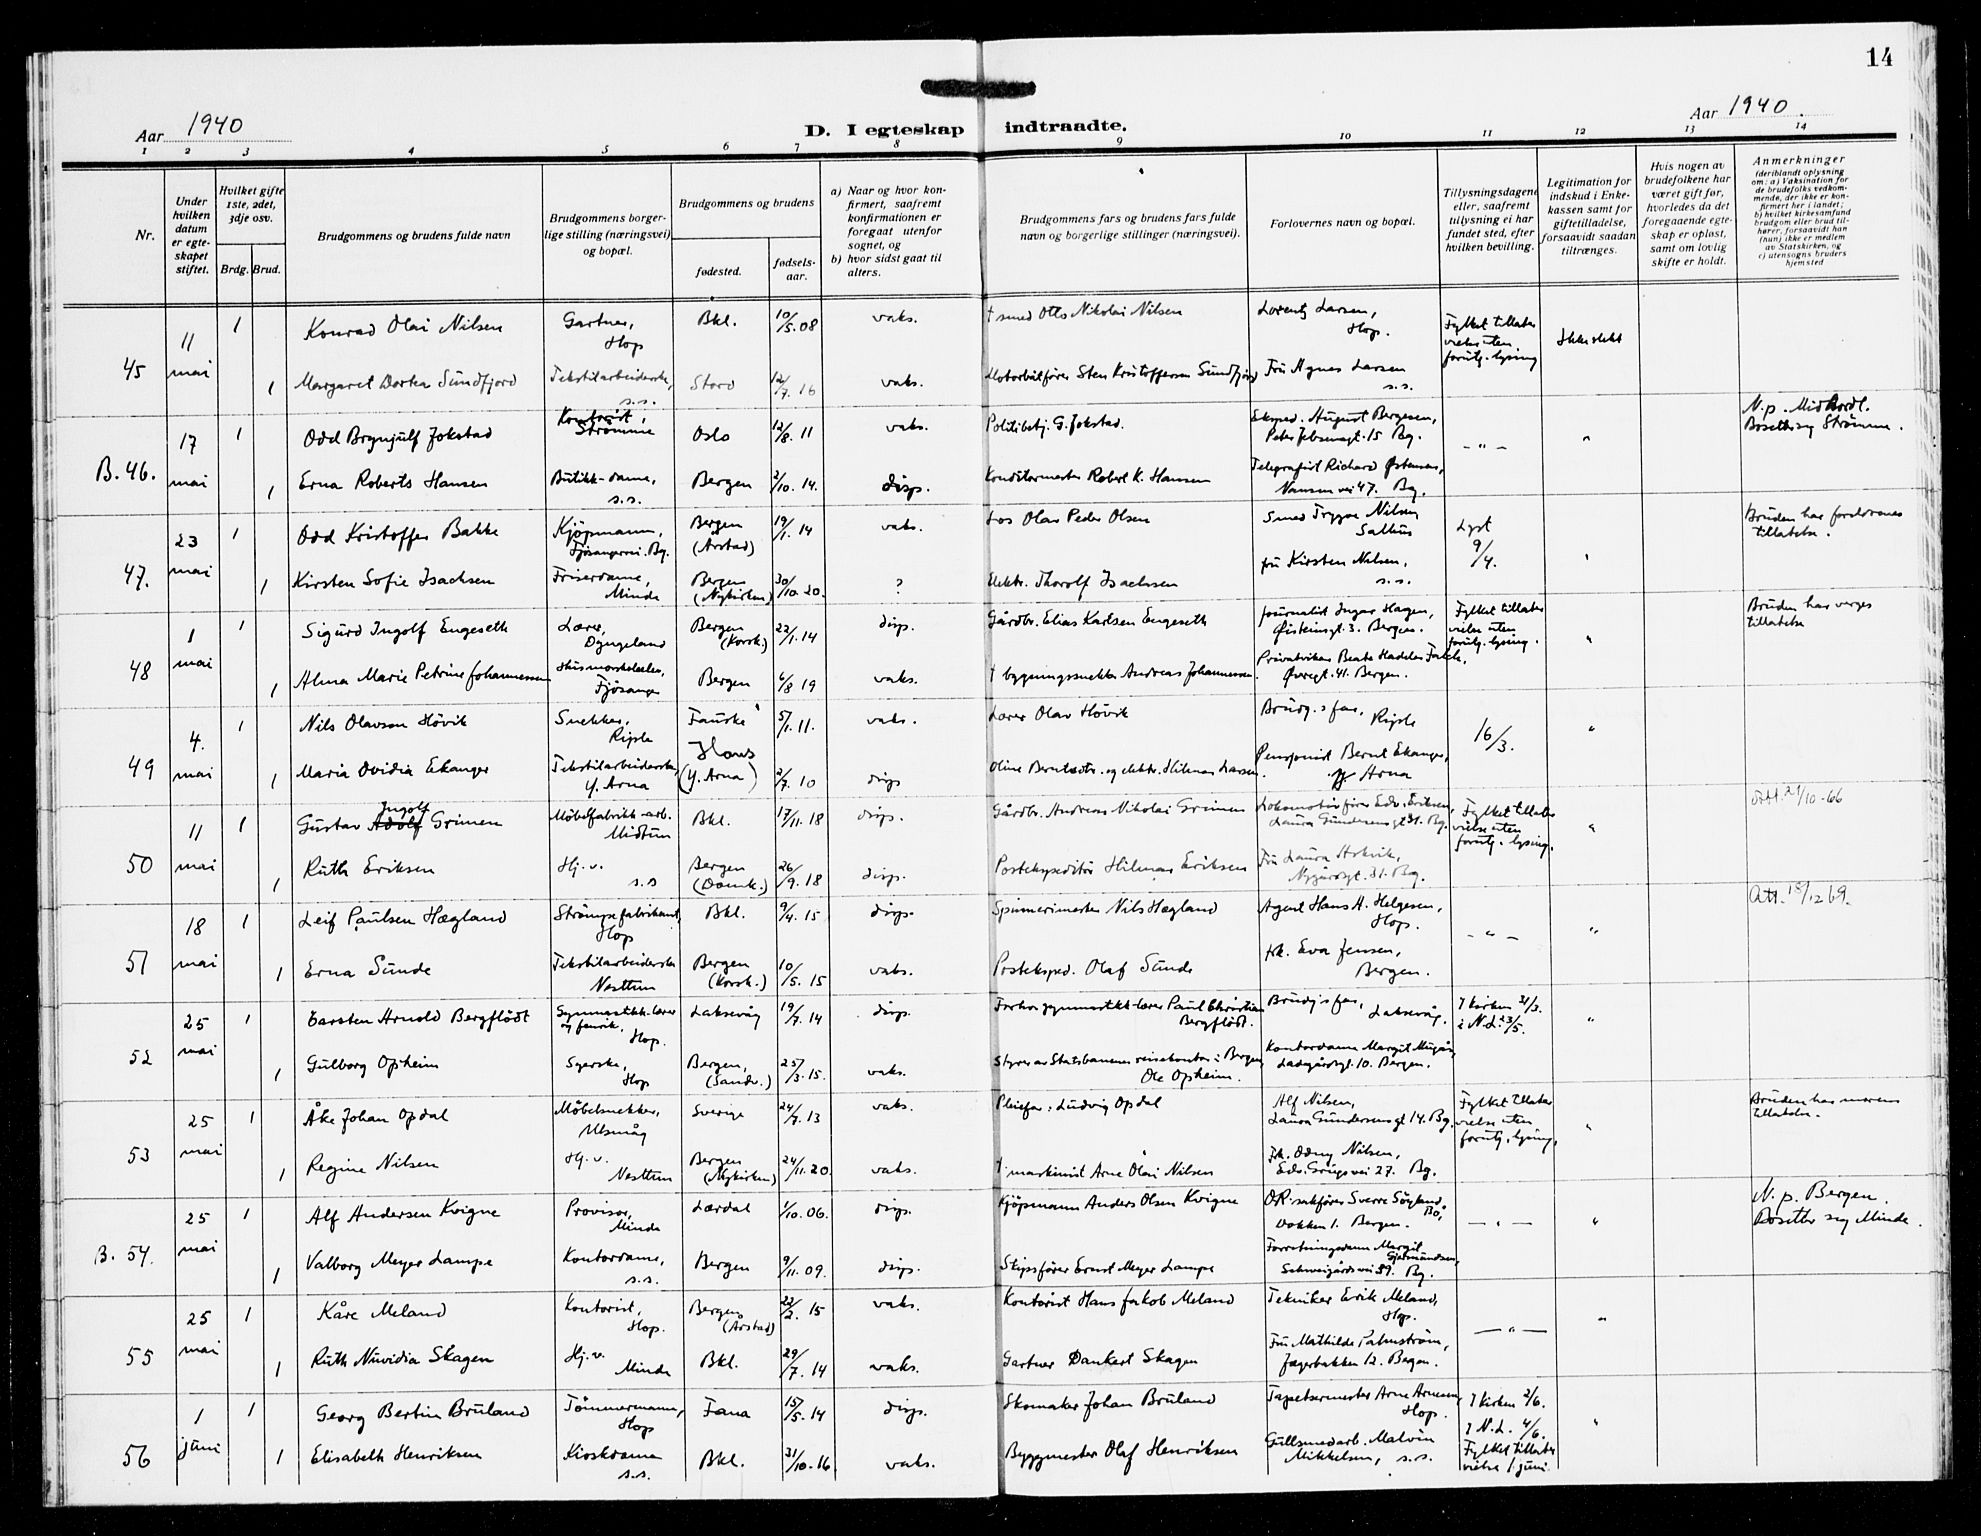 14
Aar 1940
D. I egteskap indtraadte.
Aar 1940.
1 2 3 4 5 6 7 8 9 10 11 12 13 14
Nr.
Under hvilken datum er egteskapet stiftet.
Hvilket gifte 1ste, 2det, 3dje osv.
Brdg. Brud.
Brudgommens og brudens fulde navn
Brudgommens borgerlige stilling (næringsvei) og bopæl.
Brudgommens og brudens
fødested.
fødselsaar.
a) Naar og hvor konfirmert, saafremt konfirmationen er foregaat utenfor sognet, og
b) hvor sidst gaat til alters.
Brudgommens fars og brudens fars fulde navn og borgerlige stillinger (næringsvei).
Forlovernes navn og bopæl.
Tillysningsdagene eller, saafremt tillysning ei har fundet sted, efter hvilken bevilling.
Legitimation for indskud i Enkekassen samt for giftetilladelse, forsaavidt saadan tiltrænges.
Hvis nogen av brudefolkene har været gift før, hvorledes da det foregaaende egteskap er opløst, samt om lovlig skifte er holdt.
Anmerkninger
(deriblandt oplysning om: a) Vaksination for de brudefolks vedkommende, der ikke er konfirmert her i landet; b) hvilket kirkesamfund brudgom eller brud tilhører, forsaavidt han (hun) ikke er medlem av Statskirken, og c) utensogns bruders hjemsted
45 11 mai 1 Konrad Olai Nilsen Gartner, Hop Bkl. 10/5.08 vaks. † smed Otto Nikolai Nilsen Lorentz Larsen, Hop. Fylket tillater vielse uten forutg. lysing Ikke slekt
1 Margaret Dortea Sundfjord Tekstilarbeiderske, s.s. Stord 12/7.16 vaks. Motorbåtfører Sten Kristoffersen Sundfjord Fru Agnes Larsen s.s.
B. 46. 17 mai 1 Odd Brynjulf Jokstad Kontorist, Strømme Oslo 12/8.11 vaks. Politibetj. G. Jokstad. Eksped. August Bergesen, Peter Jebsensgt. 15 Bg. - " - " N.p. Midhordl. Bosetter seg Strømme.
1 Erna Roberts Hansen Butikk-dame, s.s. Bergen 2/10.14. disp. Konditormester Robert K. Hansen Telegrafist Richard Østensen, Nansens vei 47. Bg.
47. 23 mai 1 Odd Kristoffer Bakke Kjøpmann, Fjøsangervei. Bg. Bergen (Årstad) 19/1.14 vaks. Los Olav Peder Olsen Smed Trygve Nilsen Salhus Lyst 9/4. " Bruden har foreldrenes tillatelse.
1 Kirsten Sofie Isachsen Friserdame, Minde Bergen (Nykirken) 30/10.20. ? Elektr. Thorolf Isachsen fru Kirsten Nilsen, s.s.
48 1 mai 1 Sigurd Ingolf Engeseth Lærer, Dyngeland Bergen (Korsk.) 22/1.14 disp. Gårdbr. Elias Karlsen Engeseth journalist Ingar Hagen, Øisteinsgt. 3. Bergen. Fylket tillater vielse uten forutg. lysing. " Bruden har verges tillatelse
1 Alma Marie Petrine Johannessen Husmorskoleelev, Fjøsanger Bergen 6/8 19 vaks. † bygningssnekker Andreas Johannessen. Øvregt. 41. Bergen.
49 4. mai 1 Nils Olavson Høvik Snekker, Riple Fauske 5/1.11. vaks. Lærer Olav Høvik Brudg.s far, Riple 16/3. "
1 Maria Ovidia Ekanger Tekstilarbeiderske, Y. Arna Haus (Y. Arna) 2/7.10 disp Oline Berntsdtr. og elektr. Hilmar Larsen. Pensjonist Bernt Ekanger, Y. Arna
50 11 mai 1 Gustav Adolf Ingolf Grimen Møbelfabrikk-arb. Midtun Bkl. 17/11.18 disp. Gårdbr. Andreas Nikolai Grimen Lokomotivfører Edv. Eriksen, Laura Gundersens gt 31. Bg. Fylket tillater vielse uten forutg. lysing. " Att. 21/10-66
1 Ruth Eriksen Hj. v. s.s Bergen (Domk.) 26/9.18 disp. Postekspeditør Hilmar Eriksen Fru Laura Askvik, Nygårdsgt. 31. Bg.
51 18 mai 1 Leif Paulsen Hægland Strømpefabrikant, Hop Bkl. 9/4.15 disp. Spinnerimester Nils Hægland Agent Hans A. Helgesen, Hop. - " - " Att. 18/12 69.
1 Erna Sunde Tekstilarbeiderske Nesttun Bergen (Korsk.) 10/5.15 vaks. Posteksped. Olaf Sunde frk. Eva Jensen, Bergen.
52 25 mai 1 Carsten Arnold Bergflødt Gymnastikk-lærer og fenrik. Hop. Laksevåg 19/7.14 disp. Forhv. gymnastikk-lærer Paul Christian Bergflødt. Brudg.s far, Laksevåg. I kirken 31/3. i N.L. 23/5. "
1 Gulborg Opheim Syerske, Hop Bergen, (Sandv.) 25/3.15. vaks. Styrer av Statsbanenes reisekontor i Bergen, Ole Opheim. Kontordame Margit Ladegårdsgt. 10. Bergen.
53 25 mai 1 Åke Johan Opdal Møbelsnekker, Ulsmåg Sverige 24/7.13 vaks. Pleiefar: Ludvig Opdal Alf Nilsen, Laura Gundersens gt 14. Bg. Fylket tillater vielse uten forutg. lysing. " Bruden har morens tillatelse.
1 Regine Nilsen Hj. v. Nesttun Bergen (Nykirken) 24/11.20. vaks. † maskinist Arne Olai Nilsen Frk. Odny Nilsen, Edv. Griegs vei 27. Bg.
B. 54. 25 mai 1 Alf Andersen Kvigne Provisor, Minde Lærdal 1/10.06. disp. Kjøpmann Anders Olsen Kvigne O.R. sakfører Sverre Søgland, Bo, Dokken 1. Bergen. - " - " N.p. Bergen. Bosetter seg Minde.
1 Valborg Meyer Lampe Kontordame, s.s. Bergen 9/11.09. disp. Skipsfører Ernst Meyer Lampe Forretningsdame Margit Gjermundsen, Schweigårdsvei 39. Bg.
55 25 mai 1 Kåre Meland Kontorist, Hop. Bergen (Årstad) 22/2.15 vaks. Kontorist Hans Jakob Meland Tekniker Erik Meland, Hop. - " - "
1 Ruth Nuvidia Skagen Hj. v. Minde Bkl. 29/7.14 vaks. Gartner Dankert Skagen Fru Mathilde Palmstrøm, Jægerbakken 12. Bergen.
56 1 juni 1 Georg Bertin Bruland Tømmermann, Hop Fana 15/5.14 disp. Skomaker Johan Bruland Tapetsermester Arne Arnesen, Hop. I kirken 2/6. i N.L. 4/6. "
1 Elisabeth Henriksen Kioskdame s.s. Bkl. 31/10.16. vaks. Byggmester Olaf Henriksen Gullsmedarb. Malvin Mikkelsen, s.s. Fylket tillater vielse 1. juni.